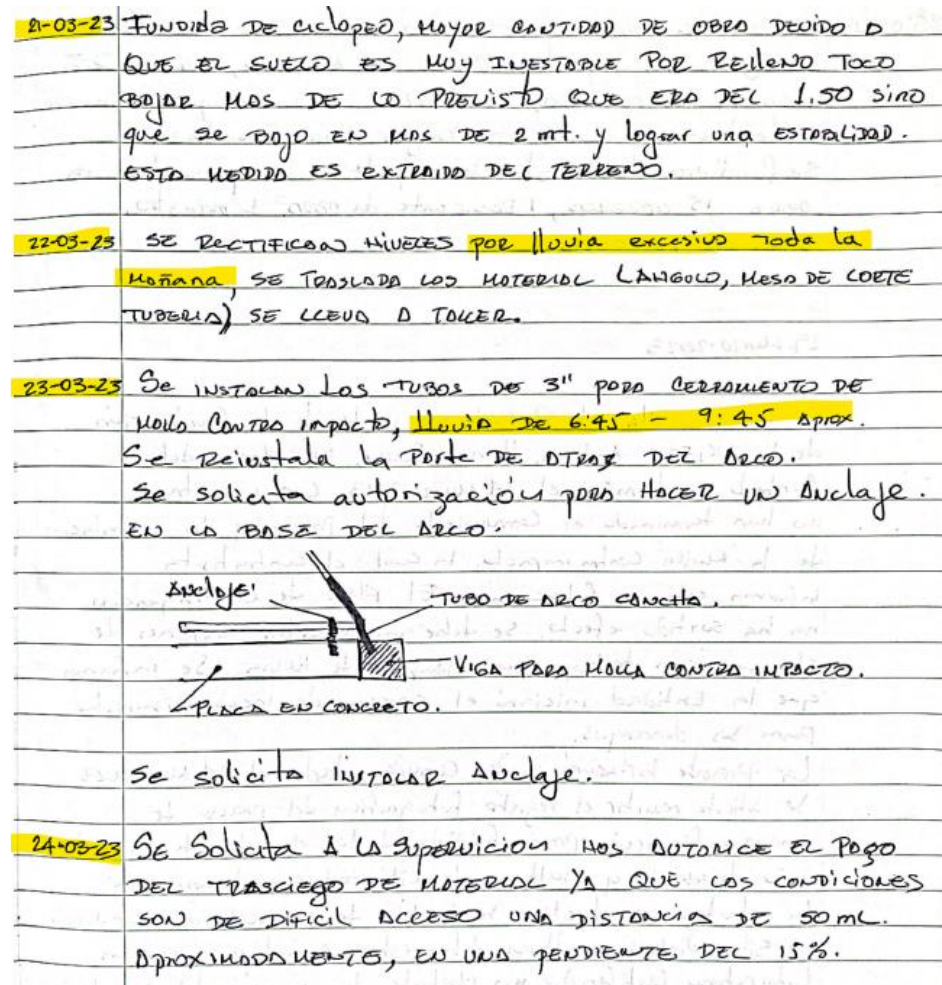 21-03-23 FUNDIDA DE CICLOPEO, MAYOR CANTIDAD DE OBRA DEVIDO A
QUE EL SUELO ES MUY INESTABLE POR RELLENO TOCO
BAJAR MAS DE LO PREVISTO QUE ERA DEL 1.50 sino
que se BAJO EN MAS DE 2 mt. y lograr una ESTABALIDAD.
ESTA MEDIDA ES EXTRAIDA DEL TERRENO.
22-03-23 SE RECTIFICAN NIVELES por lluvia excesiva Toda la
Mañana, SE TRASLADA LOS MATERIAL (ANGULO, MESA DE CORTE
TUBERIA) SE LLEVA A TALLER.
23-03-23 Se INSTALAN LOS TUBOS DE 3" PARA CERRAMIENTO DE
MALLA CONTRA IMPACTO, lluvia DE 6:45 - 9:45 Aprox.
Se Reinstala la Parte DE ATRAZ DEL ARCO.
Se solicita autorización para HACER UN Anclaje.
EN LA BASE DEL ARCO.
Anclaje:
TUBO DE ARCO CANCHA.
VIGA PARA MALLA CONTRA IMPACTO.
PLACA EN CONCRETO.
Se solicita INSTALAR Anclaje.
24-03-23 SE Solicita A LA Supervicion NOS AUTORICE EL PAGO
DEL TRASCIEGO DE MATERIAL YA QUE LAS CONDICIONES
SON DE DIFICIL ACCESO UNA DISTANCIA DE 50 mL.
APROXIMADAMENTE, EN UNA PENDIENTE DEL 15%.